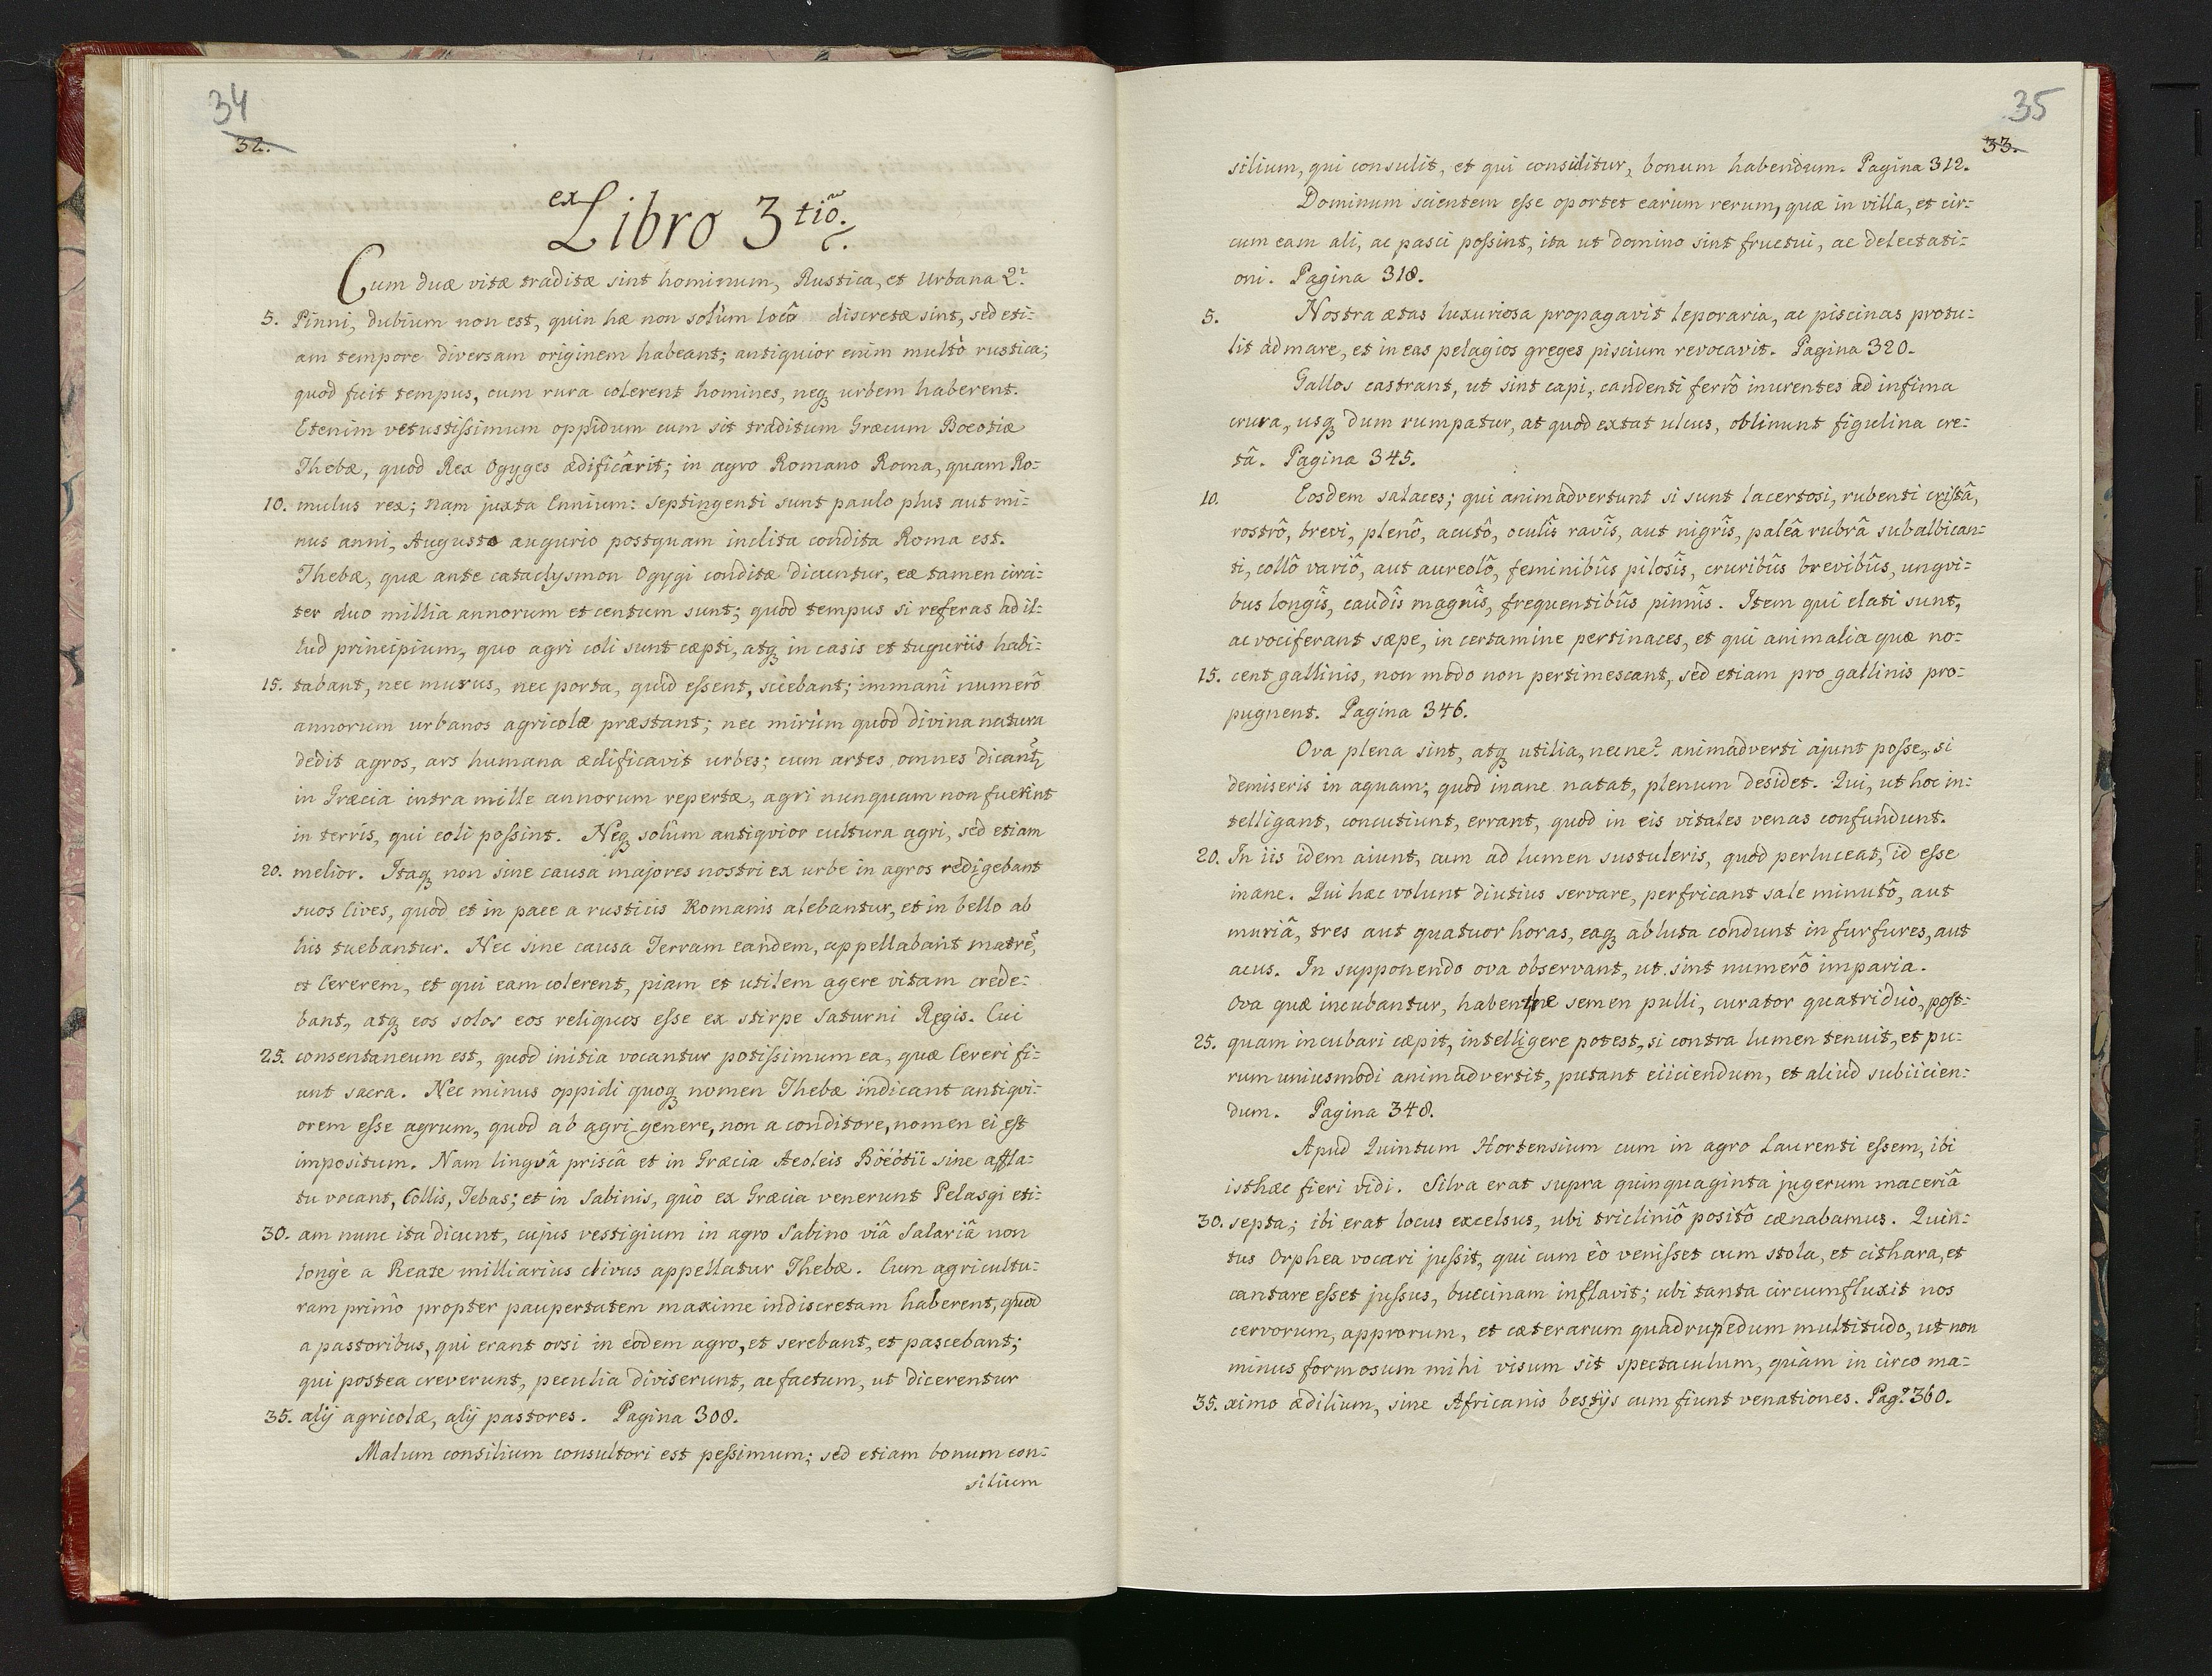 34
32.
ex Libro 3tiô.
Cum duæ vitæ traditæ sint hominum, Rustica, et Urbana Q?
5. Pinni, dubium non est, quin hæ non solùm locô discretæ sint, sed eti-
am tempore diversam originem habeant; antiquior enim multò rustica;
quod fuit tempus, cum rura colerent homines, neq urbem haberent.
Etenim vetustissimum oppidum cum sit traditum Græcum Boeotiæ
Thebæ, quod Rex Ogyges ædificârit; in agro Romano Roma, quam Ro-
10. mulus rex; nam juxta Ennium: septingenti sunt paulo plus aut mi-
nus anni, Augusto augurio postquam inclita condita Roma est.
Thebæ, quæ ante cataclysmon Ogygi conditæ dicuntur, eæ tamen circi-
ter duo millia annorum et centum sunt; quod tempus si referas ad il-
lud principium, quo agri coli sunt cæpti, atq in casis et tuguriis habi-
15. tabant, nec murus, nec porta, quid essent, sciebant; immanî numerô
annorum urbanos agricolæ præstant; nec mirùm quod divina natura
dedit agros, ars humana ædificavit urbes; cum artes omnes dicant,
in Græcia intra mille annorum repertæ, agri nunquam non fuerint
in terris, qui coli possint. Neq solùm antiqvior cultura agri, sed etiam
20. melior. Itaq non sine causa majores nostri ex urbe in agros redigebant
suos Cives, quod et in pace a rusticis Romanis alebantur, et in bello ab
his tuebantur. Nec sine causa Terram eandem, appellabant matrē,
et Cererem, et qui eam colerent, piam et utilem agere vitam crede-
bant, atq eos solos eos reliquos esse ex stirpe Saturni Regis. Cui
25. consentaneum est, quod initia vocantur potissimum ea, quæ Cereri fi-
unt sacra. Nec minus oppidi quoq nomen Thebæ indicant antiqvi-
orem esse agrum, quod ab agri genere, non a conditore, nomen ei est
impositum. Nam lingvâ priscâ et in Græcia Aeoleis Böéótii sine affla-
tu vocant, Collis, Tebas; et in Sabinis, quò ex Græcia venerunt Pelasgi eti-
30. am nunc ita dicunt, cujus vestigium in agro Sabino viâ Salariâ non
longè a Reate milliarius clivus appellatur Thebæ. Cum agricultu-
ram primò propter paupertatem maxime indiscretam haberent, quod
a pastoribus, qui erant orsi in eodem agro, et serebant, et pascebant;
qui postea creverunt, peculia diviserunt, ac factum, ut dicerentur
35. alij agricolæ, alij pastores. Pagina 308.
Malum consilium consultori est pessimum; sed etiam bonum con-
silium
35
33.
silium, qui consulit, et qui consulitur, bonum habendum. Pagina 312.
Dominum scientem esse oportet earum rerum, quæ in villa, et cir-
cum eam ali, ac pasci possint, ita ut domino sint fructui, ac delectati-
oni. Pagina 318.
5. Nostra ætas luxuriosa propagavit leporaria, ac piscinas protu-
lit ad mare, et in eas pelagios greges piscium revocavit. Pagina 320.
Gallos castrant, ut sint capi, candenti ferrô inurentes ad infima
crura, usq dum rumpatur, at quod extat ulcus, oblinunt figulina cre-
tâ. Pagina 345.
10. Eosdem salaces; qui animadvertunt si sunt lacertosi, rubenti cristâ,
rostrô, brevi, plenô, acutô, oculîs ravîs, aut nigrîs, paleâ rubrâ subalbican-
ti, collô variô, aut aureolô, feminibûs pilosîs, cruribûs brevibûs, ungvi-
bus longîs, caudîs magnîs, frequentibûs pinnîs. Item qui elati sunt,
ac vociferant sæpe, in certamine pertinaces, et qui animalia quæ no-
15. cent gallinis, non modo non pertimescant, sed etiam pro gallinis pro-
pugnent. Pagina 346.
Ova plena sint, atq utilia, necne? animadverti ajunt posse, si
demiseris in aquam; quod inane natat, plenum desidet. Qui, ut hoc in-
telligant, concutiunt, errant, quod in eis vitales venas confundunt.
20. In iis idem aiunt, cum ad lumen sustuleris, quod perluceat, id esse
inane. Qui hæc volunt diutius servare, perfricant sale minutô, aut
muriâ, tres aut quatuor horas, eaq abluta condunt in furfures, aut
acus. In supponendo ova observant, ut sint numerô imparia.
Ova quæ incubantur, habentne semen pulli, curator quatriduo, post-
25. quam incubari cæpit, intelligere potest, si contra lumen tenuit, et pu-
rum uniusmodi animadvertit, putant eiiciendum, et aliud subiicien-
dum. Pagina 348.
Apud Quintum Hortensium cum in agro Laurenti essem, ibi
isthæc fieri vidi. Silva erat supra quinquaginta jugerum maceriâ
30. septa; ibi erat locus excelsus, ubi tricliniô positô cænabamus. Quin-
tus Orphea vocari jussit, qui cum êo venisset cum stola, et cithara, et
cantare esset jussus, buccinam inflavit; ubi tanta circumfluxit nos
cervorum, approrum, et cæterarum quadrupedum multitudo, ut non
minus formosum mihi visum sit spectaculum, quàm in circo ma-
35. ximo ædilium, sine Africanis bestijs cum fiunt venationes. Pag? 360.